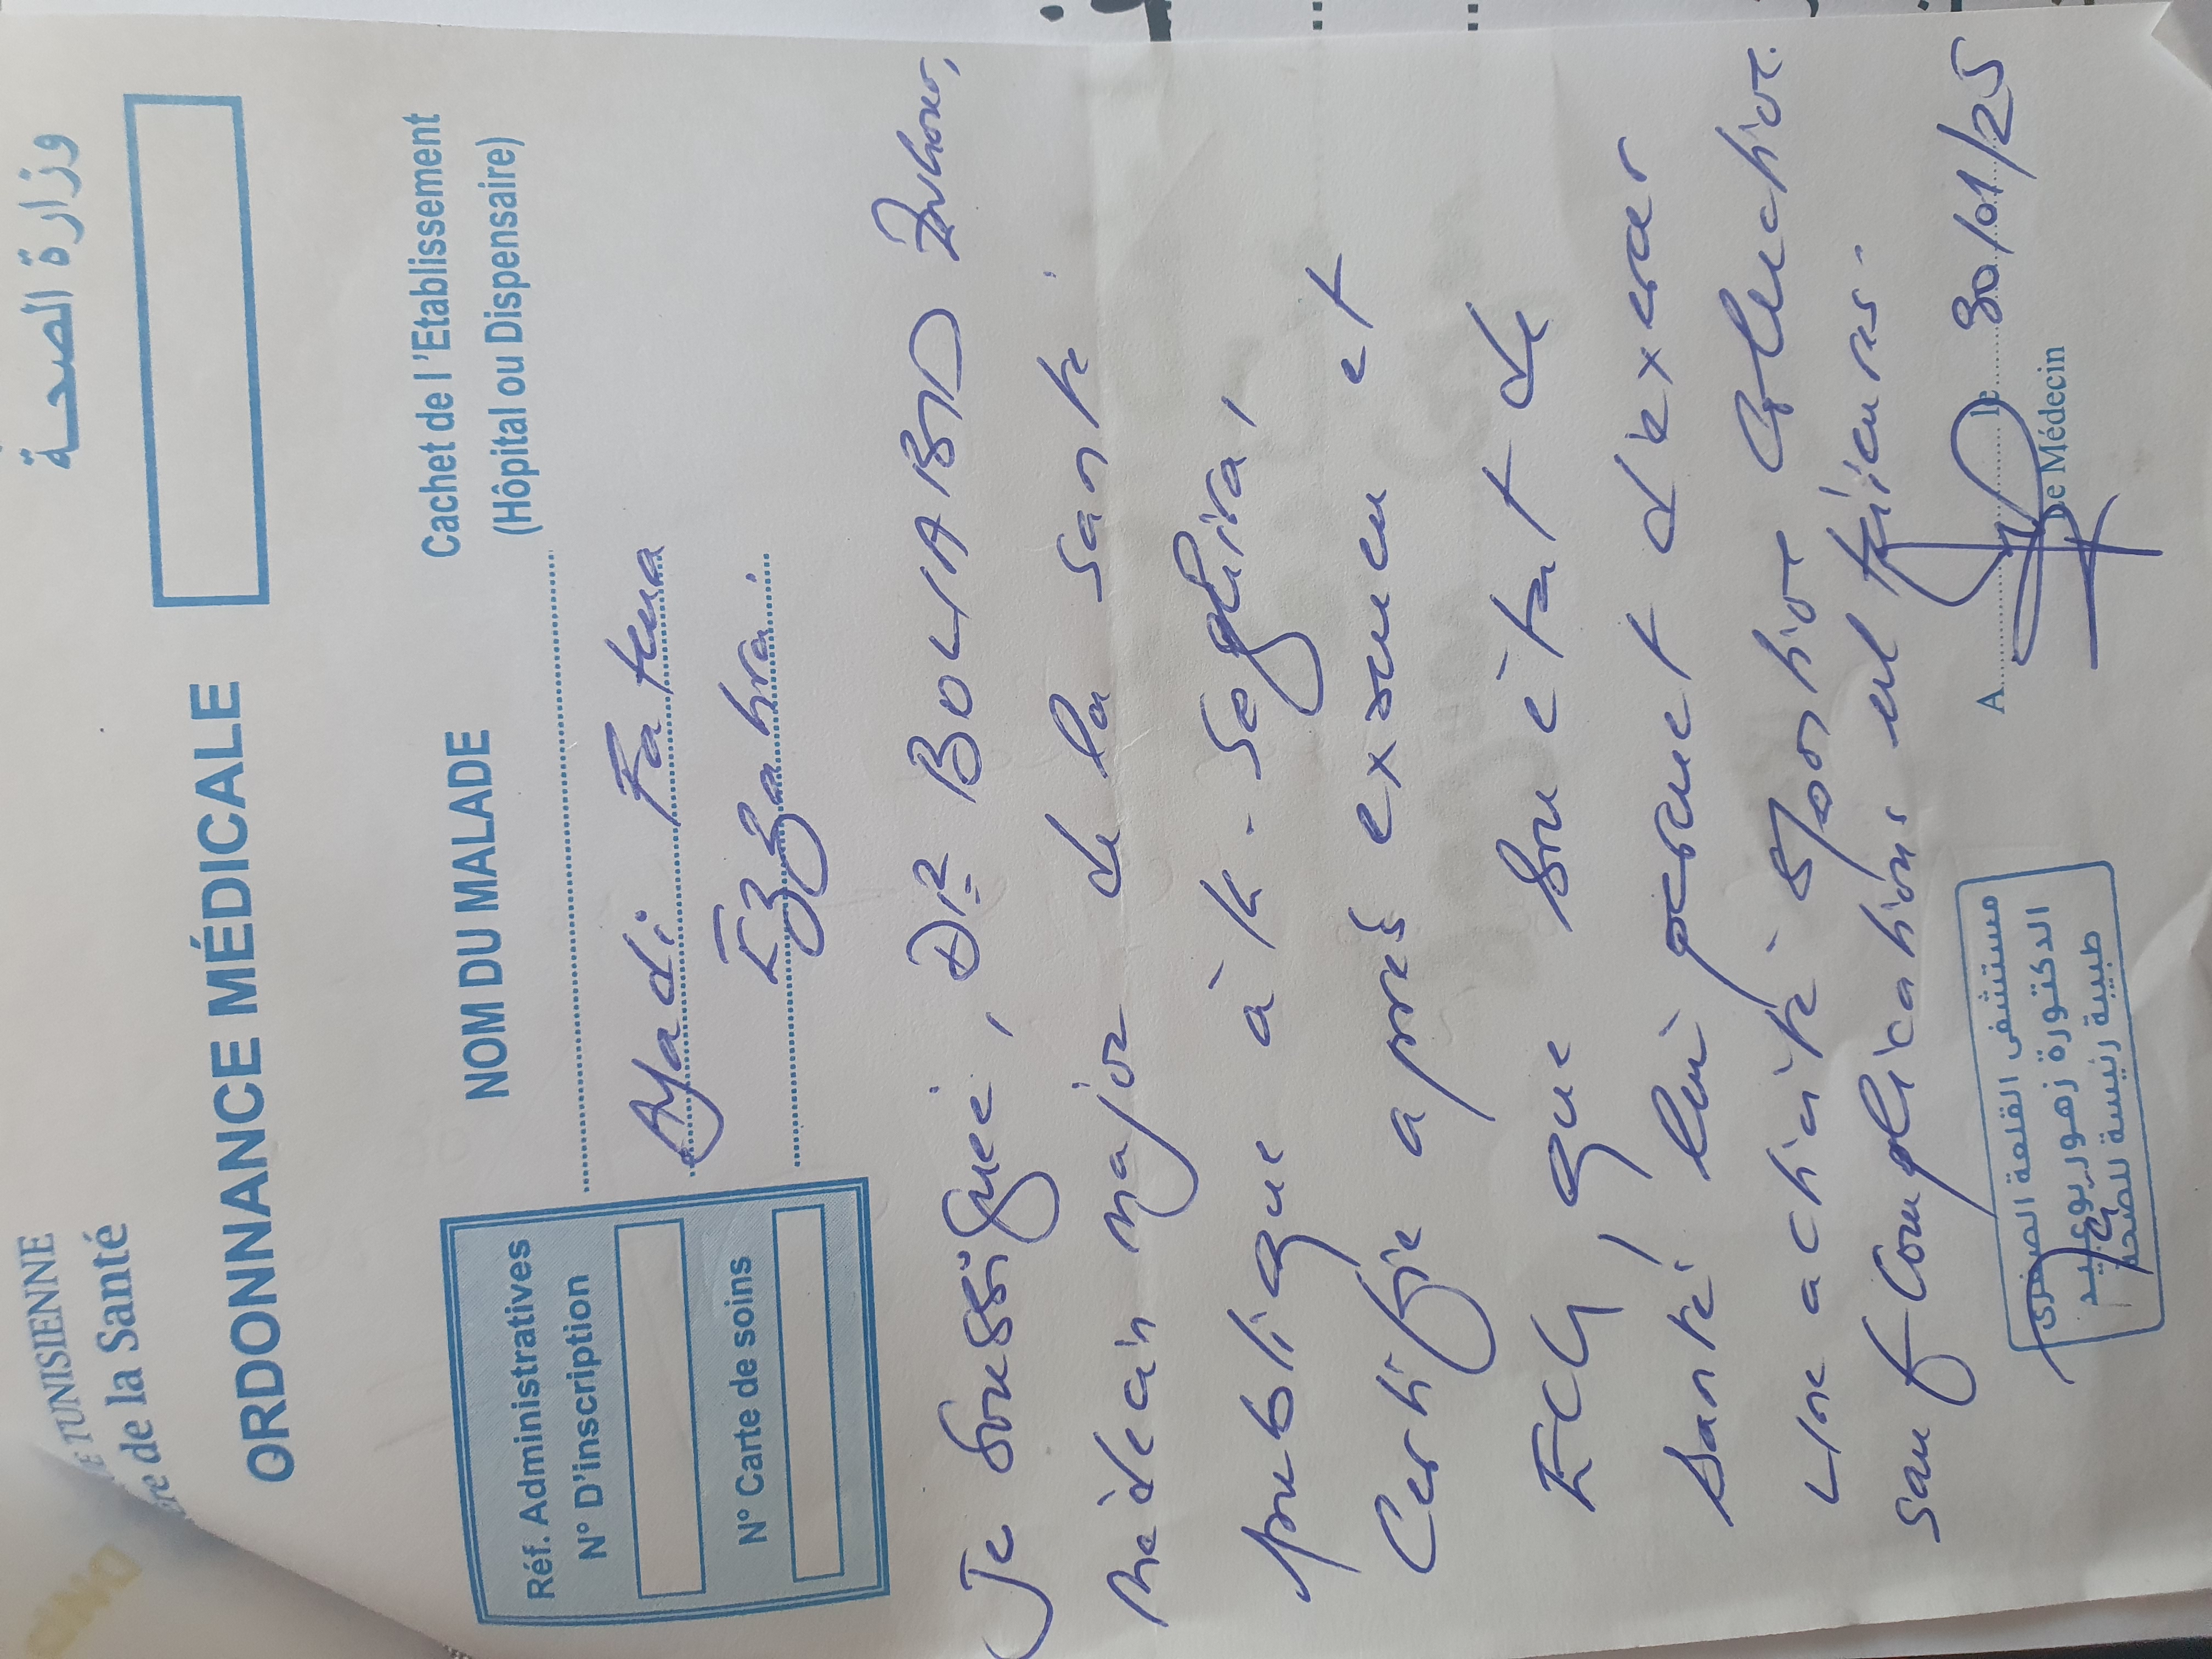 E TUNISIENNE
ère de la Santé
وزارة الصحة
ORDONNANCE MÉDICALE
Réf. Administratives
N° D'inscription
N° Carte de soins
NOM DU MALADE
Ayadi Fatma
Ezzahra
Cachet de l'Etablissement
(Hôpital ou Dispensaire)
Je soussigné, Dr BOUABID Zouhour,
médecin major de la santé
publique à k. Soghra,
Certifie après examen et
ECG, que son état de
santé, lui permet d'exercer
une activité sportive
sauf complications ultérieures.
A le 30/01/25
Le Médecin
مستشفى القلعة الصغرى
الدكتورة زهور بوعبيد
طبيبة رئيسة للصحة